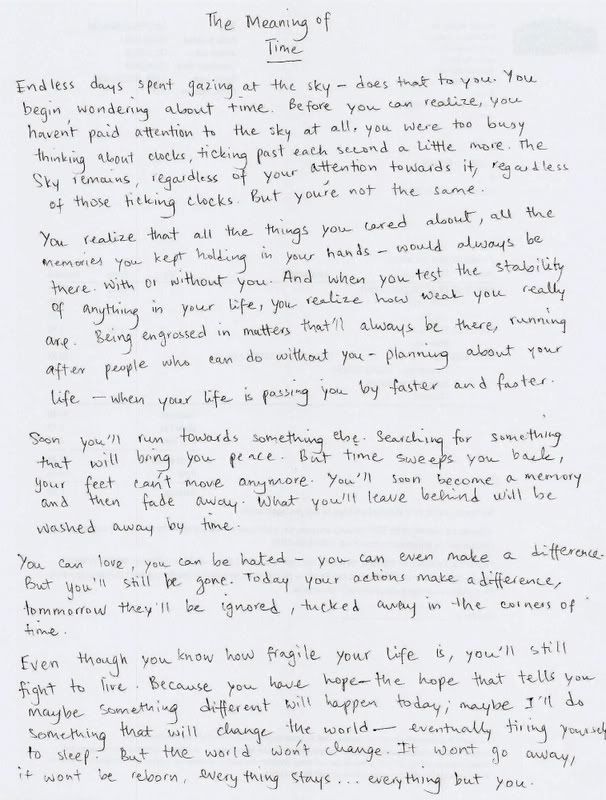 The Meaning of
Time
Endless days spent gazing at the sky – does that to you. You
begin wondering about time. Before you can realize, you
havent paid attention to the sky at all. you were too busy
thinking about clocks, ticking past each second a little more. The
Sky remains, regardless of your attention towards it, regardless
of those ticking clocks. But you're not the same.
You realize that all the things you cared about, all the
memories you kept holding in your hands – would always be
there. With or without you. And when you test the stability
of anything in your life, you realize how weak you really
are. Being engrossed in matters that'll always be there, running
after people who can do without you – planning about your
life – when your life is passing you by faster and faster.
Soon you'll run towards something else. Searching for something
that will bring you peace. But time sweeps you back,
your feet can't move anymore. You'll soon become a memory
and then fade away. What you'll leave behind will be
washed away by time.
You can love, you can be hated – you can even make a difference.
But you'll still be gone. Today your actions make a difference,
tommorrow they'll be ignored, tucked away in the corners of
time.
Even though you know how fragile your life is, you'll still
fight to live. Because you have hope – the hope that tells you
maybe something different will happen today; maybe I'll do
something that will change the world – eventually tiring yourself
to sleep. But the world won't change. It wont go away,
it wont be reborn, everything stays... everything but you.